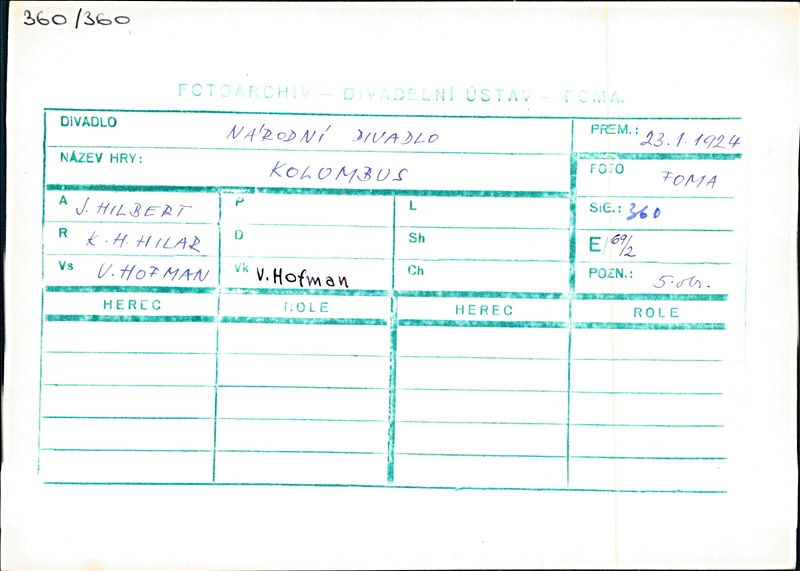 360/360
FOTOARCHIV — DIVADELNÍ ÚSTAV — FOMA.
DIVADLO NÁRODNÍ DIVADLO PREM.: 23.1.1924
NÁZEV HRY: KOLUMBUS FOTO FOMA
A J. HILBERT P L SIG.: 360
R K. H. HILAR D Sh E/69/2
Vs V. HOFMAN Vk V. Hofman Ch POZN.:
HEREC ROLE HEREC ROLE